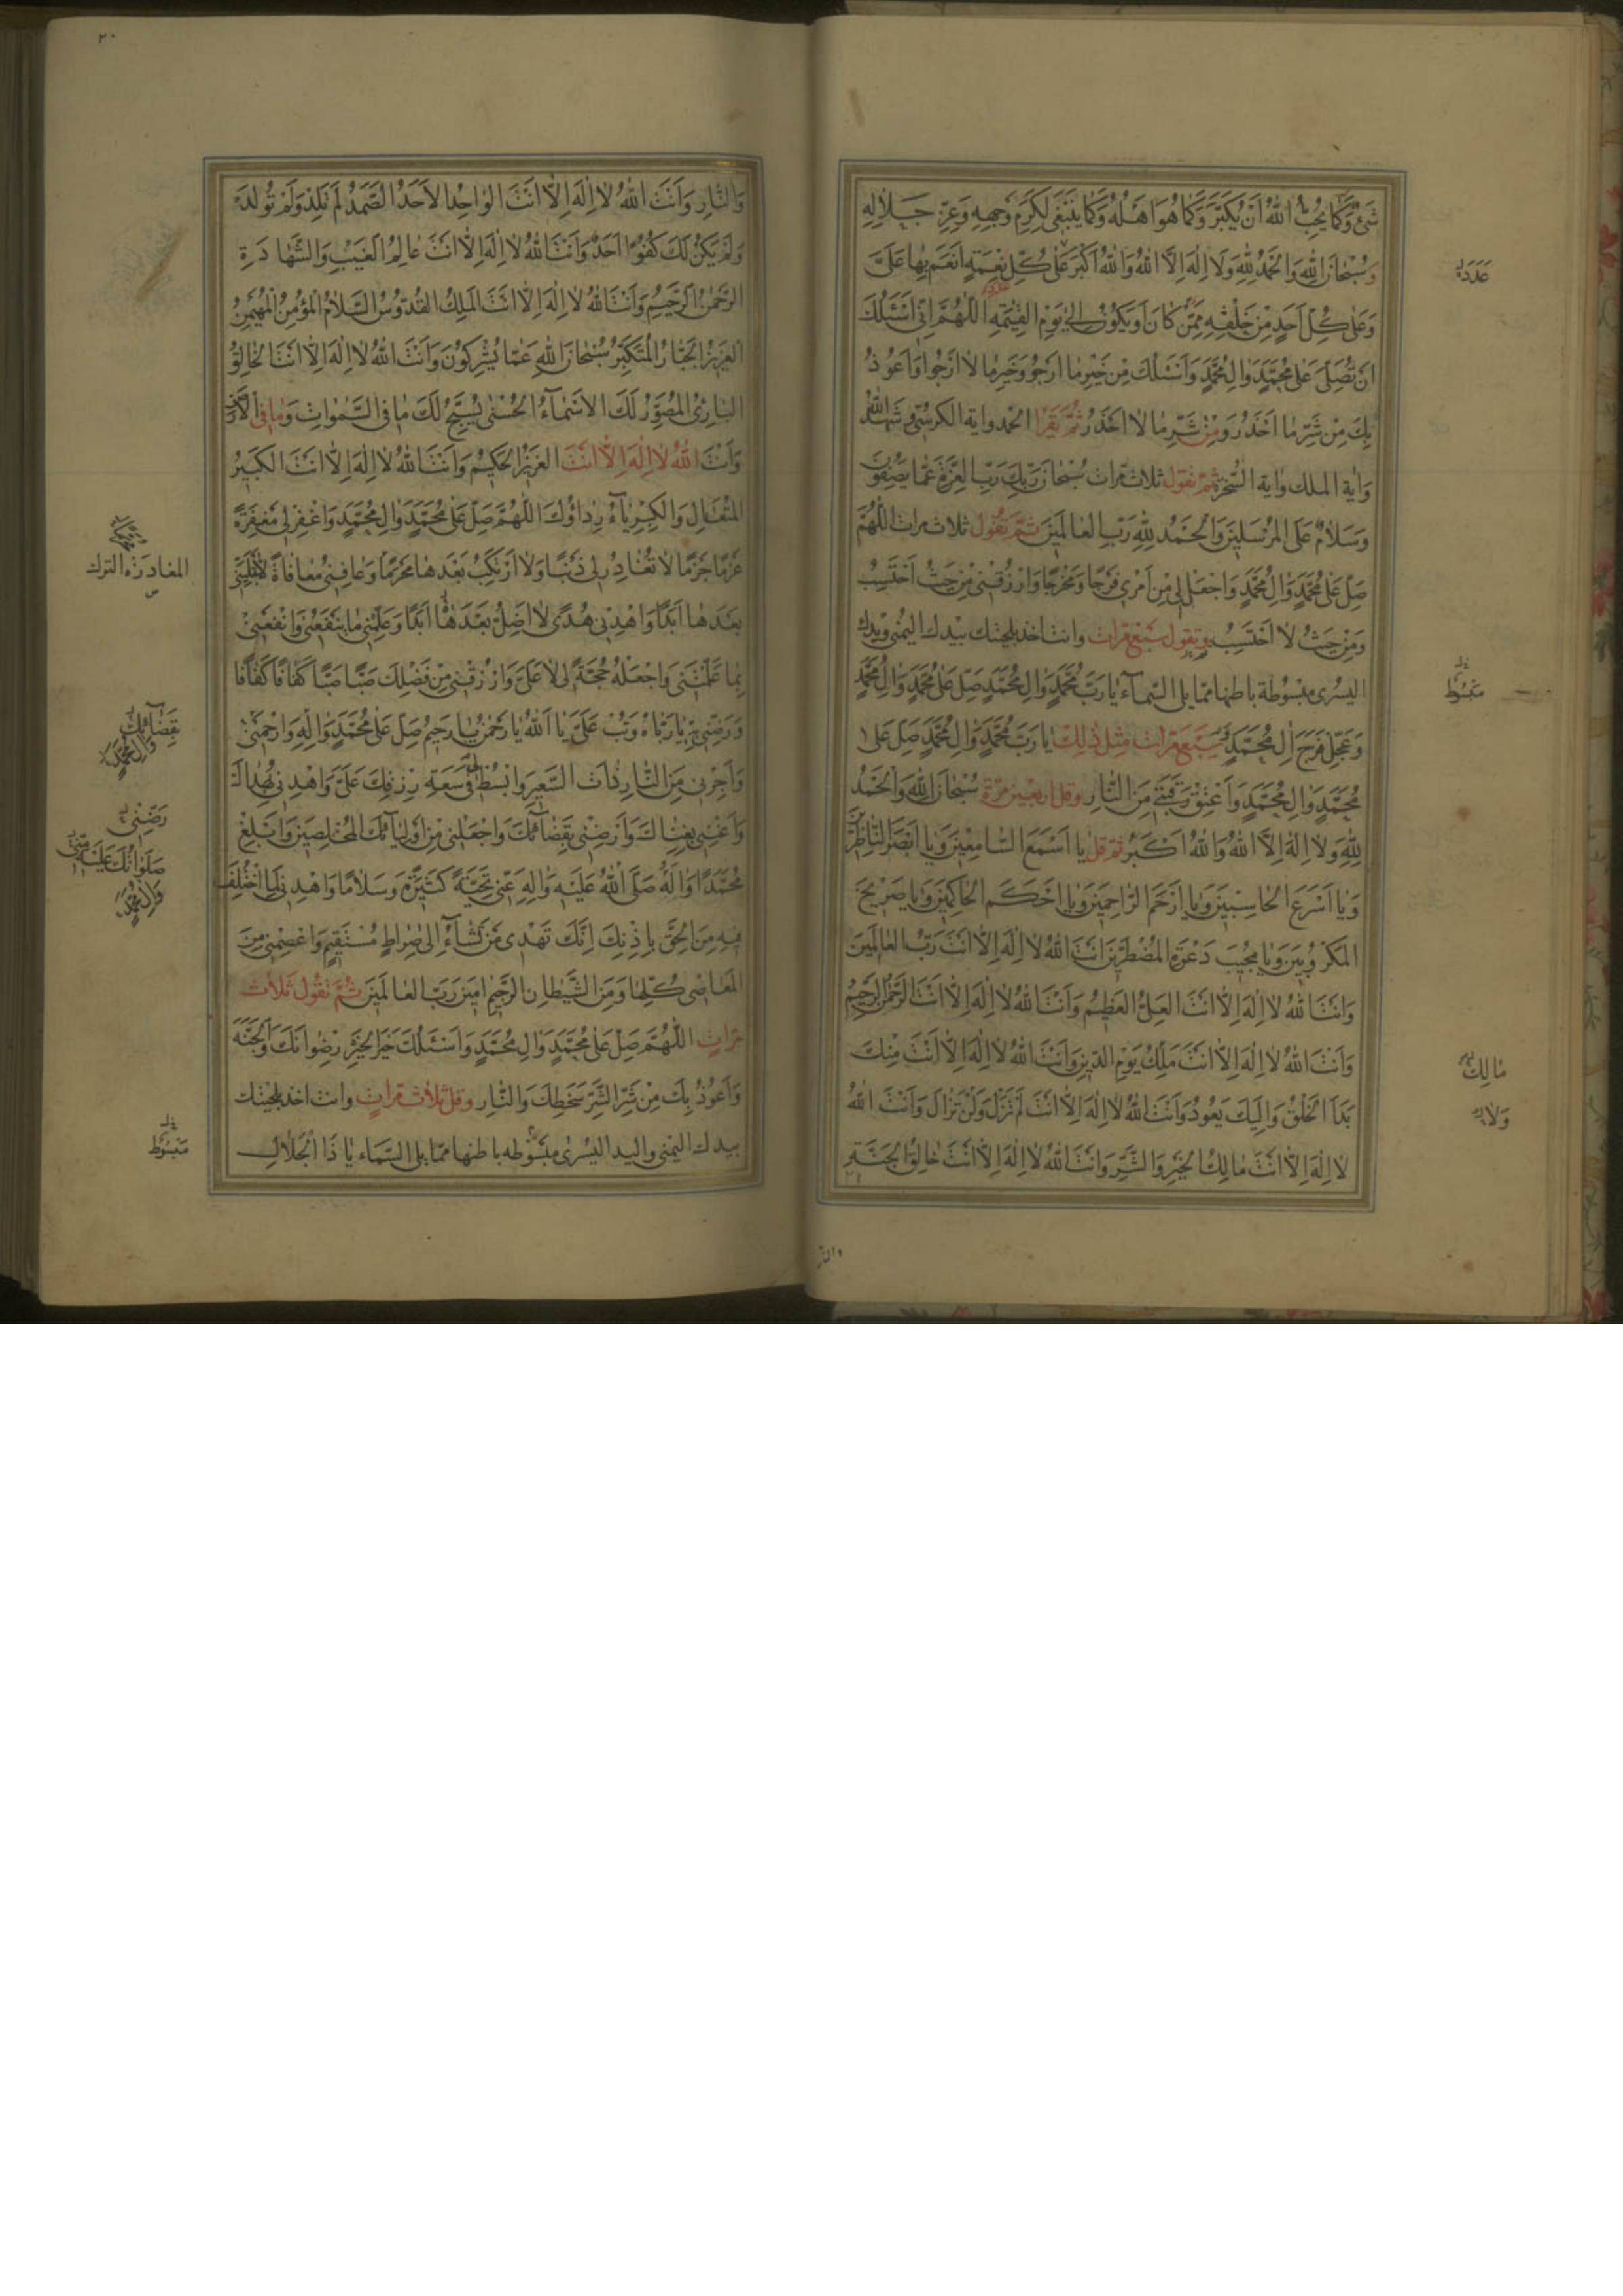 شَیْءٌ وَكَمَا يُحِبُّ اللهُ اَنْ يُكَبَّرَ وَكَمَا هُوَ اَهْلُهُ وَكَمَا يَنْبَغِي لِكَرَمِ وَجْهِهِ وَعِزِّ جَلَالِهِ
وَسُبْحَانَ اللهِ وَالْحَمْدُ لِلّٰهِ وَلَا اِلٰهَ اِلَّا اللهُ وَاللهُ اَكْبَرُ عَلٰى كُلِّ نِعْمَةٍ اَنْعَمَ بِهَا عَلَيَّ
عَدَدَ
وَعَلٰى كُلِّ اَحَدٍ مِنْ خَلْقِهِ مِمَّنْ كَانَ اَوْ يَكُونُ اِلٰى يَوْمِ الْقِيٰمَةِ اَللّٰهُمَّ اِنِّي اَسْئَلُكَ
اَنْ تُصَلِّيَ عَلٰى مُحَمَّدٍ وَاٰلِ مُحَمَّدٍ وَاَسْئَلُكَ مِنْ خَيْرِ مَا اَرْجُو وَخَيْرِ مَا لَا اَرْجُوا وَاَعُوذُ
بِكَ مِنْ شَرِّ مَا اَحْذَرُ وَمِنْ شَرِّ مَا لَا اَحْذَرُ ثُمَّ يَقْرَا الحمد واية الكرسي و شهد الله
وَاٰية الملك وَاٰية السّخرة ثُمَّ تَقُول ثلاث مرات سُبْحَانَ رَبِّكَ رَبِّ الْعِزَّةِ عَمَّا يَصِفُونَ
وَسَلَامٌ عَلَى الْمُرْسَلِينَ وَالْحَمْدُ لِلّٰهِ رَبِّ الْعَالَمِينَ ثُمَّ تَقُول ثلاث مرات اَللّٰهُمَّ
صَلِّ عَلٰى مُحَمَّدٍ وَاٰلِ مُحَمَّدٍ وَاجْعَلْ لِي مِنْ اَمْرِي فَرَجًا وَمَخْرَجًا وَارْزُقْنِي مِنْ حَيْثُ اَحْتَسِبُ
وَمِنْ حَيْثُ لَا اَحْتَسِبُ وتقول سَبْعَ مَرّات وانت اخذ بلحيتك بيدك اليمنى ويدك
اليسرى مبسُوطة باطنها ممّا يلي السّماء يَا رَبَّ مُحَمَّدٍ وَاٰلِ مُحَمَّدٍ صَلِّ عَلٰى مُحَمَّدٍ وَاٰلِ مُحَمَّدٍ
مَبْسُوط
وَعَجِّلْ فَرَجَ اٰلِ مُحَمَّدٍ سَبْعَ مَرّات مِثْلَ ذٰلِكَ يَا رَبَّ مُحَمَّدٍ وَاٰلِ مُحَمَّدٍ صَلِّ عَلٰى
مُحَمَّدٍ وَاٰلِ مُحَمَّدٍ وَاَعْتِقْ رَقَبَتِي مِنَ النَّارِ وقل اربعين مرّة سُبْحَانَ اللهِ وَالْحَمْدُ
لِلّٰهِ وَلَا اِلٰهَ اِلَّا اللهُ وَاللهُ اَكْبَرُ ثم قل يَا اَسْمَعَ السَّامِعِينَ وَيَا اَبْصَرَ النَّاظِرِينَ
وَيَا اَسْرَعَ الْحَاسِبِينَ وَيَا اَرْحَمَ الرَّاحِمِينَ وَيَا اَحْكَمَ الْحَاكِمِينَ وَيَا صَرِيخَ
الْمَكْرُوبِينَ وَيَا مُجِيبَ دَعْوَةِ الْمُضْطَرِّينَ اَنْتَ اللهُ لَا اِلٰهَ اِلَّا اَنْتَ رَبُّ الْعَالَمِينَ
وَاَنْتَ اللهُ لَا اِلٰهَ اِلَّا اَنْتَ الْعَلِيُّ الْعَظِيمُ وَاَنْتَ اللهُ لَا اِلٰهَ اِلَّا اَنْتَ الرَّحْمٰنُ الرَّحِيمُ
وَاَنْتَ اللهُ لَا اِلٰهَ اِلَّا اَنْتَ مَلِكُ يَوْمِ الدِّينِ وَاَنْتَ اللهُ لَا اِلٰهَ اِلَّا اَنْتَ مِنْكَ
مَالِكُ
بَدَأَ الْخَلْقُ وَاِلَيْكَ يَعُودُ وَاَنْتَ اللهُ لَا اِلٰهَ اِلَّا اَنْتَ لَمْ تَزَلْ وَلَنْ تَزَالَ وَاَنْتَ اللهُ
وَلَا
لَا اِلٰهَ اِلَّا اَنْتَ مَالِكُ الْخَيْرِ وَالشَّرِّ وَاَنْتَ اللهُ لَا اِلٰهَ اِلَّا اَنْتَ خَالِقُ الْجَنَّةِ
والنار
٢٠
وَالنَّارِ وَاَنْتَ اللهُ لَا اِلٰهَ اِلَّا اَنْتَ الْوَاحِدُ الْاَحَدُ الصَّمَدُ لَمْ تَلِدْ وَلَمْ تُولَدْ
وَلَمْ يَكُنْ لَكَ كُفُوًا اَحَدٌ وَاَنْتَ اللهُ لَا اِلٰهَ اِلَّا اَنْتَ عَالِمُ الْغَيْبِ وَالشَّهَادَةِ
الرَّحْمٰنُ الرَّحِيمُ وَاَنْتَ اللهُ لَا اِلٰهَ اِلَّا اَنْتَ الْمَلِكُ الْقُدُّوسُ السَّلَامُ الْمُؤْمِنُ الْمُهَيْمِنُ
الْعَزِيزُ الْجَبَّارُ الْمُتَكَبِّرُ سُبْحَانَ اللهِ عَمَّا يُشْرِكُونَ وَاَنْتَ اللهُ لَا اِلٰهَ اِلَّا اَنْتَ الْخَالِقُ
الْبَارِئُ الْمُصَوِّرُ لَكَ الْاَسْمَاءُ الْحُسْنٰى يُسَبِّحُ لَكَ مَا فِي السَّمٰوَاتِ وَمَا فِي الْاَرْضِ
وَاَنْتَ اللهُ لَا اِلٰهَ اِلَّا اَنْتَ الْعَزِيزُ الْحَكِيمُ وَاَنْتَ اللهُ لَا اِلٰهَ اِلَّا اَنْتَ الْكَبِيرُ
الْمُتَعَالِ وَالْكِبْرِيَاءُ رِدَاؤُكَ اَللّٰهُمَّ صَلِّ عَلٰى مُحَمَّدٍ وَاٰلِ مُحَمَّدٍ وَاغْفِرْ لِي مَغْفِرَةً
عَزْمًا جَزْمًا لَا تُغَادِرُ لِي ذَنْبًا وَلَا اَرْتَكِبُ بَعْدَهَا مُحَرَّمًا وَعَافِنِي مُعَافَاةً لَا تَبْتَلِينِي
المغادرة الترك
بَعْدَهَا اَبَدًا وَاهْدِنِي هُدًى لَا اَضِلُّ بَعْدَهُ اَبَدًا وَعَلِّمْنِي مَا يَنْفَعُنِي وَانْفَعْنِي
بِمَا عَلَّمْتَنِي وَاجْعَلْهُ حُجَّةً لِي لَا عَلَيَّ وَارْزُقْنِي مِنْ فَضْلِكَ صَبًّا صَبًّا كَفَافًا كَفَافًا
وَرَضِّنِي بِهِ يَا رَبَّاهُ وَتُبْ عَلَيَّ يَا اَللهُ يَا رَحْمٰنُ يَا رَحِيمُ صَلِّ عَلٰى مُحَمَّدٍ وَاٰلِهِ وَارْحَمْنِي
بِقَضَائِكَ
وَاٰلِ مُحَمَّدٍ
وَاَجِرْنِي مِنَ النَّارِ ذَاتِ السَّعِيرِ وَابْسُطْ لِي فِي سَعَةِ رِزْقِكَ عَلَيَّ وَاهْدِنِي بِهُدَاكَ
وَاَغْنِنِي بِغِنَاكَ وَاَرْضِنِي بِقَضَائِكَ وَاجْعَلْنِي مِنْ اَوْلِيَائِكَ الْمُخْلَصِينَ وَاَبْلِغْ
رَضِّنِي
مُحَمَّدًا وَاٰلَهُ صَلَّى اللهُ عَلَيْهِ وَاٰلِهِ عَنِّي تَحِيَّةً كَثِيرَةً وَسَلَامًا وَاهْدِنِي لِمَا اخْتُلِفَ
صَلَوَاتُكَ عَلَيْهِ
وَاٰلِ مُحَمَّدٍ
فِيهِ مِنَ الْحَقِّ بِاِذْنِكَ اِنَّكَ تَهْدِي مَنْ تَشَاءُ اِلٰى صِرَاطٍ مُسْتَقِيمٍ وَاعْصِمْنِي مِنَ
الْمَعَاصِي كُلِّهَا وَمِنَ الشَّيْطَانِ الرَّجِيمِ اٰمِينَ رَبَّ الْعَالَمِينَ ثُمَّ تَقُول ثَلَاث
مَرّاتٍ اَللّٰهُمَّ صَلِّ عَلٰى مُحَمَّدٍ وَاٰلِ مُحَمَّدٍ وَاَسْئَلُكَ خَيْرَ الْخَيْرِ رِضْوَانَكَ وَالْجَنَّةَ
وَاَعُوذُ بِكَ مِنْ شَرِّ الشَّرِّ سَخَطِكَ وَالنَّارِ وقل ثلاث مرّات وانت اخذ بلحيتك
بيدك اليمنى واليد اليسرى مبسُوطه باطنها ممّا يلي السّماء يَا ذَا الْجَلَالِ
مَبْسُوط